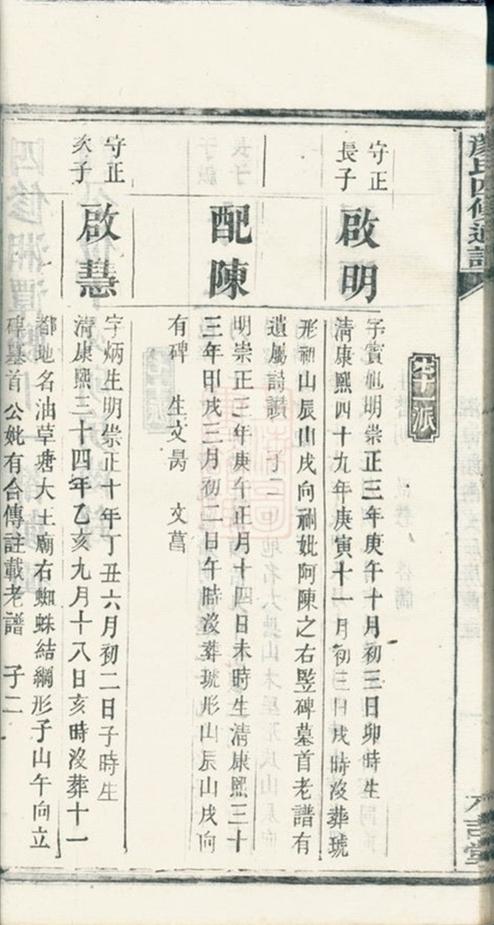 顏氏四修通譜
六言堂
生十一派
守正
長子
啟明
字賓旭明崇正三年庚午十月初三日卯時生
清康熙四十九年庚寅十一月初三日戌時沒葬琥
形祔山辰山戌向祔妣阿陳之右竪碑墓首老譜有
遺屬詩讚 子二
配陳
明崇正三年庚午正月十四日未時生清康熙三十
三年甲戌三月初二日午時沒葬琥形山辰山戌向
有碑 生文昺 文菖
守正
次子
啟慧
字炳生明崇正十年丁丑六月初二日子時生
清康熙三十四年乙亥九月十八日亥時沒葬十一
都地名油草塘大王廟右蜘蛛結網形子山午向立
碑墓首公妣有合傳註載老譜 子二